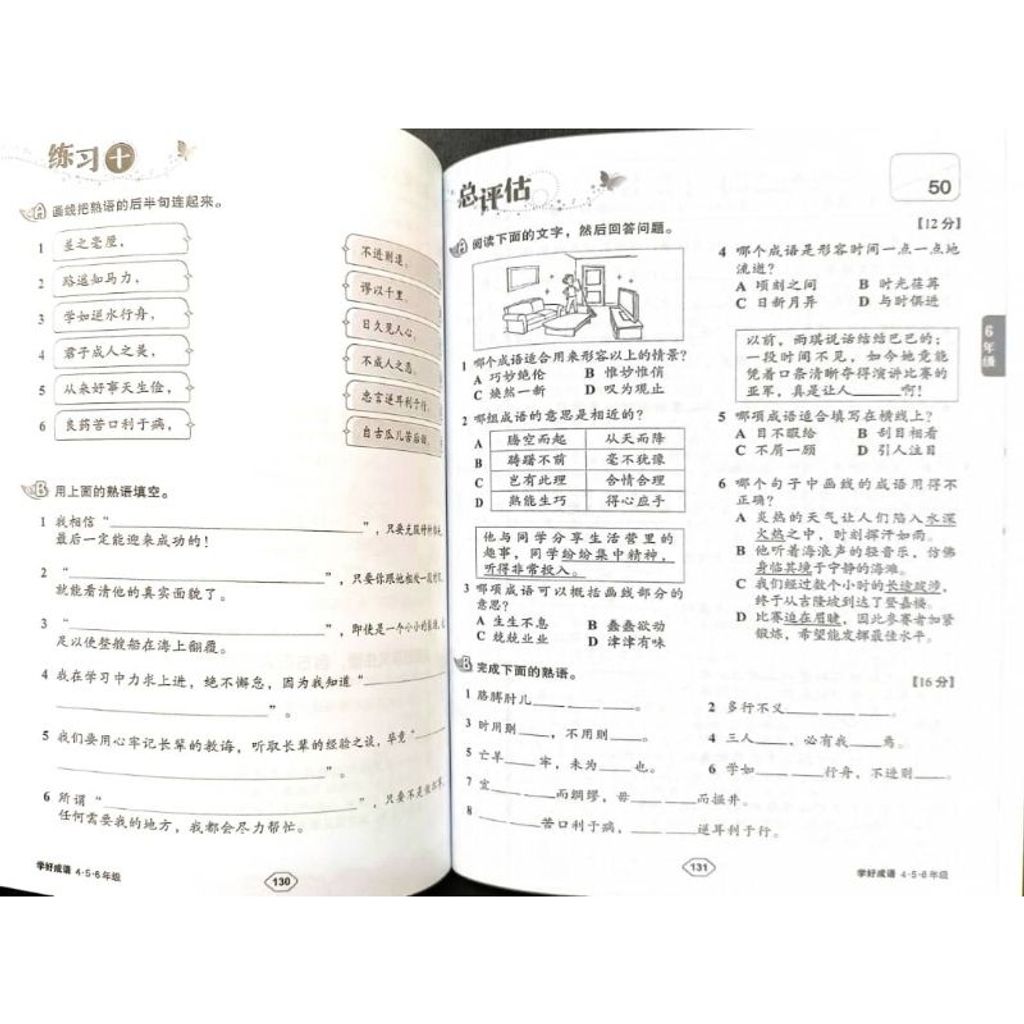 练习十
A 画线把熟语的后半句连起来。
1 差之毫厘，
2 路遥知马力，
3 学如逆水行舟，
4 君子成人之美，
5 从来好事天生俭，
6 良药苦口利于病，
不进则退。
谬以千里。
日久见人心。
不成人之恶。
忠言逆耳利于行。
自古瓜儿苦后甜。
B 用上面的熟语填空。
1 我相信“ ”，只要克服种种
最后一定能迎来成功的！
2 “ ”，只要你跟他相处一段
就能看清他的真实面貌了。
3 “ ”，即使是一个小小的
足以使整艘船在海上翻覆。
4 我在学习中力求上进，绝不懈怠，因为我知道“
”。
5 我们要用心牢记长辈的教诲，听取长辈的经验之谈，毕竟“
”。
6 所谓“ ”，只要不是做坏事，
任何需要我的地方，我都会尽力帮忙。
学好成语 4·5·6年级
130
总评估
50
A 阅读下面的文字，然后回答问题。
【12分】
1 哪个成语适合用来形容以上的情景？
A 巧妙绝伦 B 惟妙惟俏
C 焕然一新 D 叹为观止
2 哪组成语的意思是相近的？
A 腾空而起 从天而降
B 踌躇不前 毫不犹豫
C 岂有此理 合情合理
D 熟能生巧 得心应手
他与同学分享生活营里的
趣事，同学纷纷集中精神，
听得非常投入。
3 哪项成语可以概括画线部分的
意思？
A 生生不息 B 蠢蠢欲动
C 兢兢业业 D 津津有味
4 哪个成语是形容时间一点一点地
流逝？
A 顷刻之间 B 时光荏苒
C 日新月异 D 与时俱进
以前，雨琪说话结结巴巴的；
一段时间不见，如今她竟能
凭着口条清晰夺得演讲比赛的
亚军，真是让人______啊！
5 哪项成语适合填写在横线上？
A 目不暇给 B 刮目相看
C 不屑一顾 D 引人注目
6 哪个句子中画线的成语用得不
正确？
A 炎热的天气让人们陷入水深
火热之中，时刻挥汗如雨。
B 他听着海浪声的轻音乐，仿佛
身临其境于宁静的海滩。
C 我们经过数个小时的长途跋涉，
终于从吉隆坡到达了登嘉楼。
D 比赛迫在眉睫，因此参赛者加紧
锻炼，希望能发挥最佳水平。
6年级
B 完成下面的熟语。
【16分】
1 胳膊肘儿____ ____ ____。
2 多行不义____ ____ ____。
3 时用则____，不用则____。
4 三人____，必有我____焉。
5 亡羊____牢，未为____也。
6 学如____ ____行舟，不进则____。
7 宜____ ____而绸缪，毋____ ____而掘井。
8 ____ ____苦口利于病，____ ____逆耳利于行。
131
学好成语 4·5·6年级